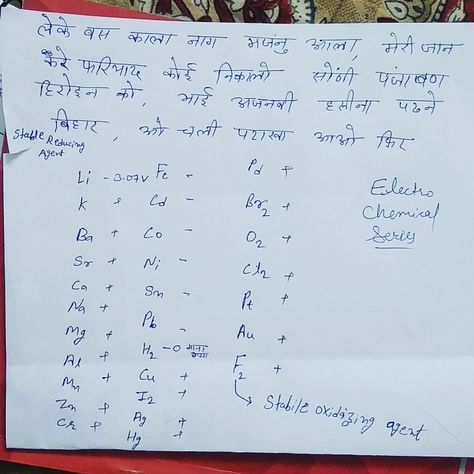 लेके बस काला नाग मजनु आला, मेरी जान
करे फरियाद कोई निकालो सोनी पंजाबण
हिरोइन को, भाई अजनबी हसीना पटने
बिहार, ओ चली पटाखा आओ फिर
Stable Reducing
Agent
Li - 3.07V
K +
Ba +
Sr +
Ca +
Na +
Mg +
Al +
Mn +
Zn +
Cr +
Fe -
Cd -
Co -
Ni -
Sn -
Pb -
H2 - 0 माना गया
Cu +
I2 +
Ag +
Hg +
Pd +
Br2 +
O2 +
Cl2 +
Pt +
Au +
F2 +
Stabile oxidizing agent
Electro
Chemical
Series